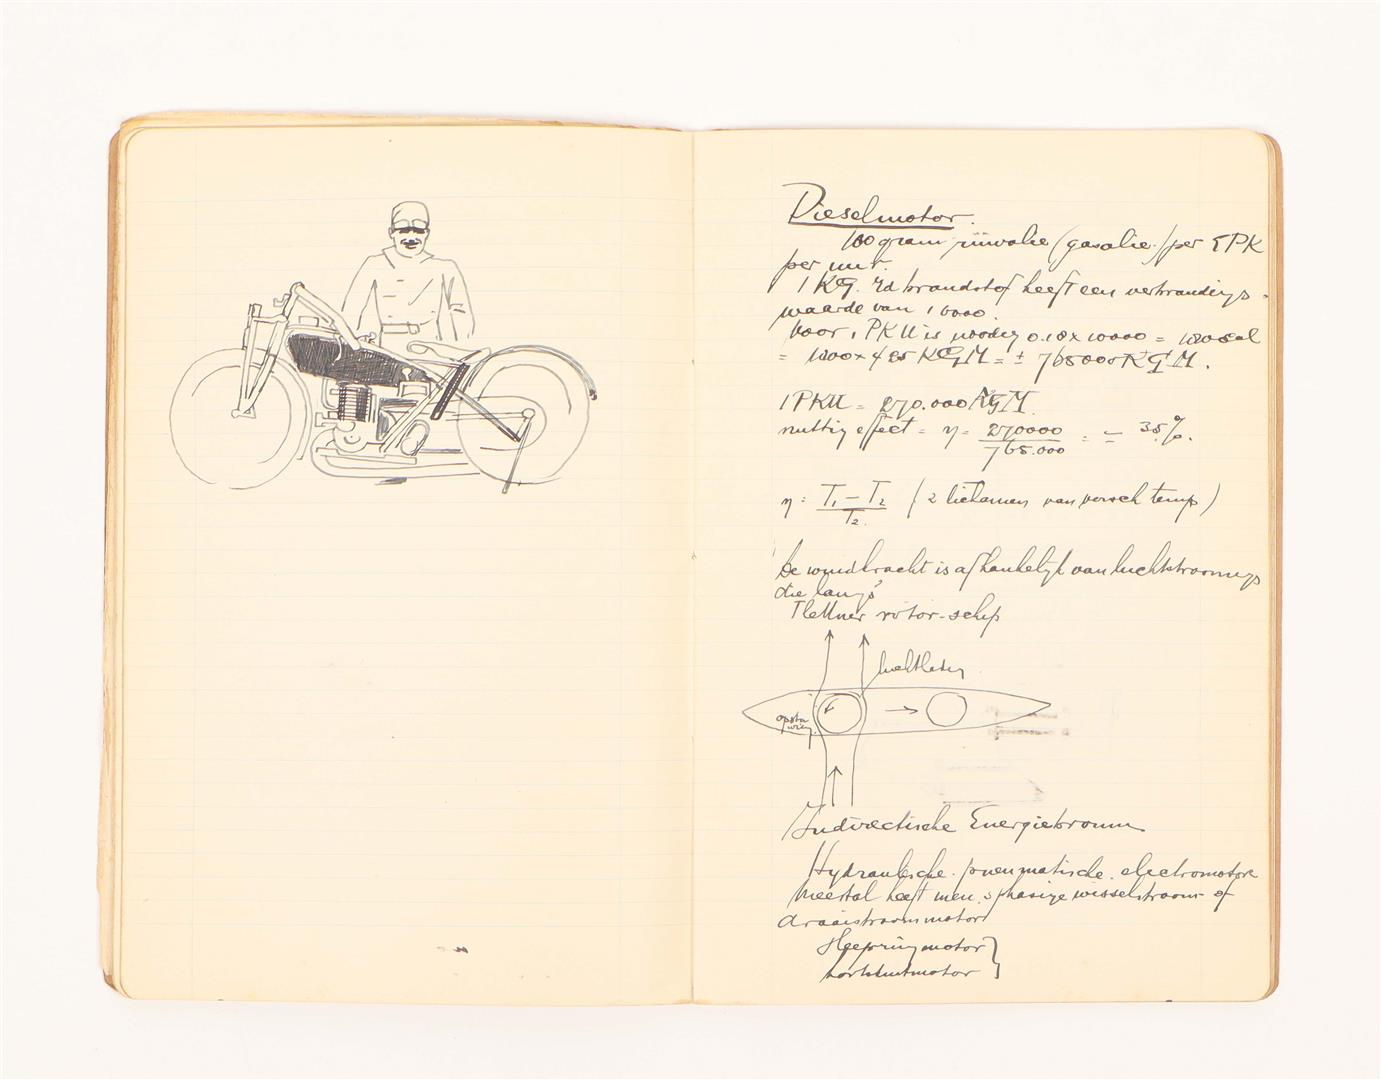 Dieselmotor.
100 gram ruwolie (gasolie) per PK
per uur.
1 KG. brandstof heeft een verbrandings-
waarde van 10000.
Voor 1 PKU is noodig 0.18 x 10000 = 1800 cal
= 1800 x 425 KGM = ± 765000 KGM.
1 PKU = 270.000 KGM
nuttig effect = η = 270000 / 765.000 = 35%.
η = T1 – T2 / T2. (2 lichamen van versch temp)
De windkracht is afhankelijk van luchtstrooming
die langs
Flettner rotor-schip
opstu
wing
Indirectische Energiebronnen
Hydraulische. pneumatische. electromotore
Meestal heeft men 3 phasige wisselstroom of
draaistroommotor
Sleepringmotor
kortsluitmotor